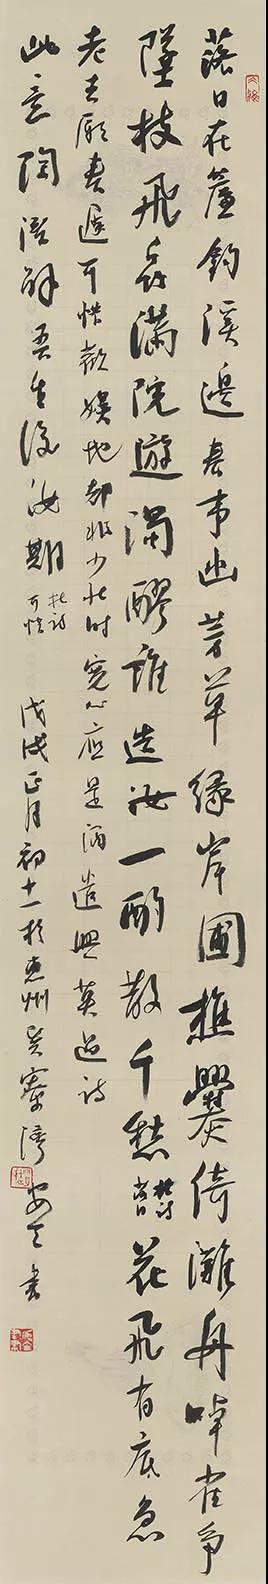 落日在簾鈎溪邊春事幽芳草緣岸圃樵爨倚灘舟啅雀爭
墜枝飛虫滿院遊濁醪誰造汝一酌散千愁杜詩落日花飛有底急
老去願春遲可惜歡娱地都非少壯時寬心應是酒遣興莫過詩
此意陶潛解吾生後汝期杜詩可惜戊戌正月初十一於惠州巽寮灣安之書